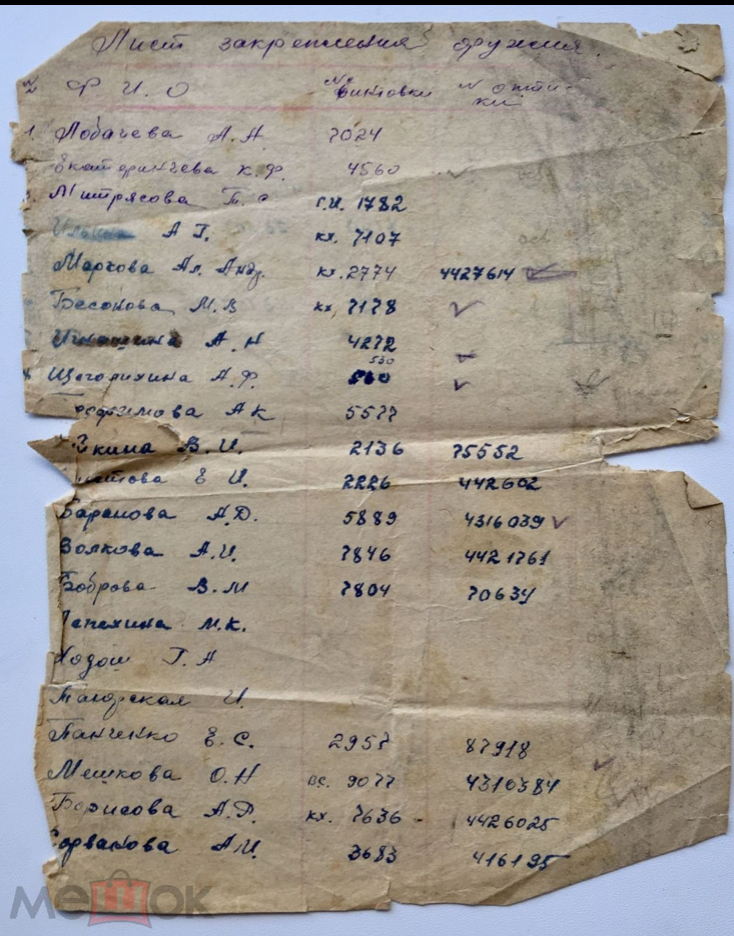 Лист закрепления оружия.
Ф И. О № Винтовки N опти-
ки
1 Лобачева А. А. 7024
Екатеринчева К. Ф. 4560
Митрясова Т. С г.и. 1782
А Г. кх. 7107
Марчова Ал. Анд. кх. 2774 4427614
Бесонова М. В кх, 7178
Игнашина А. Н 4272
530
Щегорихина А. Ф. 530
Трофимова А К 5577
В. И. 2136 75552
Е И. 2226 442602
Баранова А. Д. 5889 4316039
Волкова А. И. 7846 4421761
Боброва В. М 7804 70634
Лепехина М. К.
Ходош Г. А
И.
Панченко Е. С. 2957 87918
Мешкова О. Н ос. 9077 4310384
Борисова А. Д. кх. 7636 - 4426025
А. И. 3683 416195
мешок